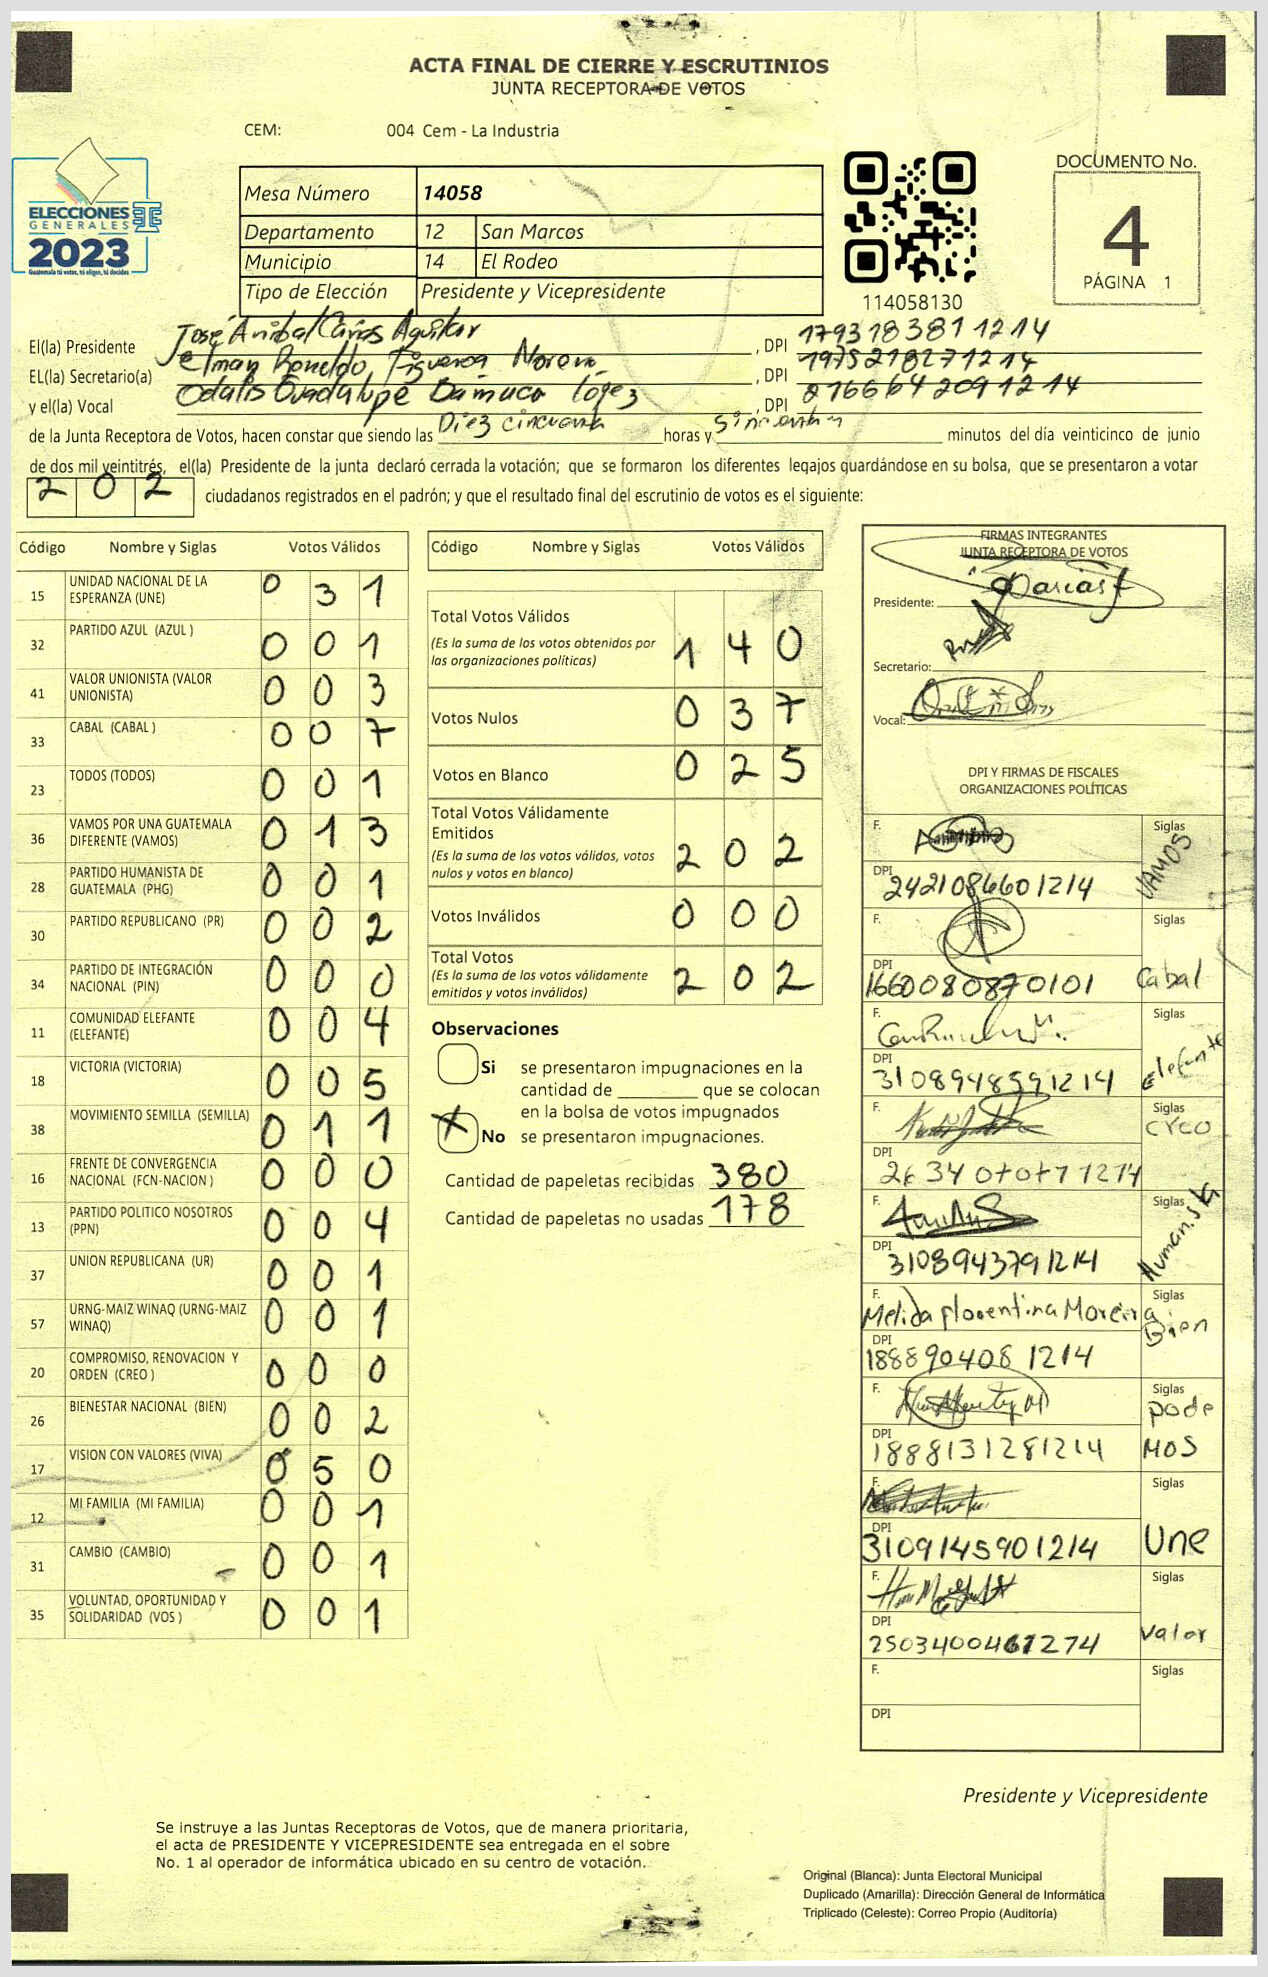 ACTA FINAL DE CIERRE Y ESCRUTINIOS
JUNTA RECEPTORA DE VOTOS
CEM: 004 Cem - La Industria
ELECCIONES
GENERALES
2023
Guatemala tú votas, tú eliges, tú decides
Mesa Número 14058
Departamento 12 San Marcos
Municipio 14 El Rodeo
Tipo de Elección Presidente y Vicepresidente
114058130
DOCUMENTO No.
4
PÁGINA 1
El(la) Presidente José Anibal Aguilar, DPI 1793183811214
EL(la) Secretario(a) Elman Ronaldo Figueroa, DPI 1975218271214
y el(la) Vocal Odalis Guadalupe López, DPI
de la Junta Receptora de Votos, hacen constar que siendo las Diez horas y minutos del día veinticinco de junio
de dos mil veintitrés, el(la) Presidente de la junta declaró cerrada la votación; que se formaron los diferentes legajos guardándose en su bolsa, que se presentaron a votar
202 ciudadanos registrados en el padrón; y que el resultado final del escrutinio de votos es el siguiente:
Código Nombre y Siglas Votos Válidos
15 UNIDAD NACIONAL DE LA ESPERANZA (UNE) 0 3 1
32 PARTIDO AZUL (AZUL ) 0 0 1
41 VALOR UNIONISTA (VALOR UNIONISTA) 0 0 3
33 CABAL (CABAL ) 0 0 7
23 TODOS (TODOS) 0 0 1
36 VAMOS POR UNA GUATEMALA DIFERENTE (VAMOS) 0 1 3
28 PARTIDO HUMANISTA DE GUATEMALA (PHG) 0 0 1
30 PARTIDO REPUBLICANO (PR) 0 0 2
34 PARTIDO DE INTEGRACIÓN NACIONAL (PIN) 0 0 0
11 COMUNIDAD ELEFANTE (ELEFANTE) 0 0 4
18 VICTORIA (VICTORIA) 0 0 5
38 MOVIMIENTO SEMILLA (SEMILLA) 0 1 1
16 FRENTE DE CONVERGENCIA NACIONAL (FCN-NACION ) 0 0 0
13 PARTIDO POLITICO NOSOTROS (PPN) 0 0 4
37 UNION REPUBLICANA (UR) 0 0 1
57 URNG-MAIZ WINAQ (URNG-MAIZ WINAQ) 0 0 1
20 COMPROMISO, RENOVACION Y ORDEN (CREO ) 0 0 0
26 BIENESTAR NACIONAL (BIEN) 0 0 2
17 VISION CON VALORES (VIVA) 0 5 0
12 MI FAMILIA (MI FAMILIA) 0 0 1
31 CAMBIO (CAMBIO) 0 0 1
35 VOLUNTAD, OPORTUNIDAD Y SOLIDARIDAD (VOS ) 0 0 1
Código Nombre y Siglas Votos Válidos
Total Votos Válidos 1 4 0
(Es la suma de los votos obtenidos por las organizaciones políticas)
Votos Nulos 0 3 7
Votos en Blanco 0 2 5
Total Votos Válidamente Emitidos 2 0 2
(Es la suma de los votos válidos, votos nulos y votos en blanco)
Votos Inválidos 0 0 0
Total Votos 2 0 2
(Es la suma de los votos válidamente emitidos y votos inválidos)
Observaciones
Si se presentaron impugnaciones en la
cantidad de ________ que se colocan
en la bolsa de votos impugnados
X No se presentaron impugnaciones.
Cantidad de papeletas recibidas 380
Cantidad de papeletas no usadas 178
FIRMAS INTEGRANTES
JUNTA RECEPTORA DE VOTOS
Presidente:
Secretario:
Vocal:
DPI Y FIRMAS DE FISCALES
ORGANIZACIONES POLÍTICAS
F. Siglas VAMOS
DPI 2421086601214
F. Siglas Cabal
DPI 1660080870101
F. Siglas Elefante
DPI 3108948591214
F. Siglas creo
DPI
F. Siglas Humanista
DPI 3108943791214
F. Melida florentina Moreira Siglas Bien
DPI 1888904081214
F. Siglas podemos
DPI 1888131281214
F. Siglas Une
DPI 3109145901214
F. Siglas Valor
DPI
F. Siglas
DPI
Presidente y Vicepresidente
Se instruye a las Juntas Receptoras de Votos, que de manera prioritaria,
el acta de PRESIDENTE Y VICEPRESIDENTE sea entregada en el sobre
No. 1 al operador de informática ubicado en su centro de votación.
Original (Blanca): Junta Electoral Municipal
Duplicado (Amarilla): Dirección General de Informática
Triplicado (Celeste): Correo Propio (Auditoría)